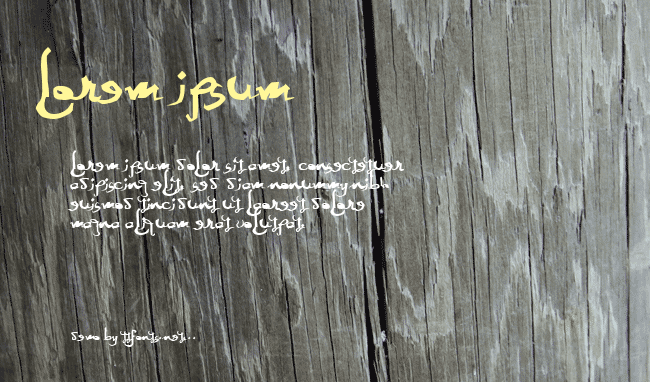 Lorem ipsum
Lorem ipsum dolor sit amet, consectetuer
adipiscing elit, sed diam nonummy nibh
euismod tincidunt ut laoreet dolore
magna aliquam erat volutpat.
demo by ttfonts.net...